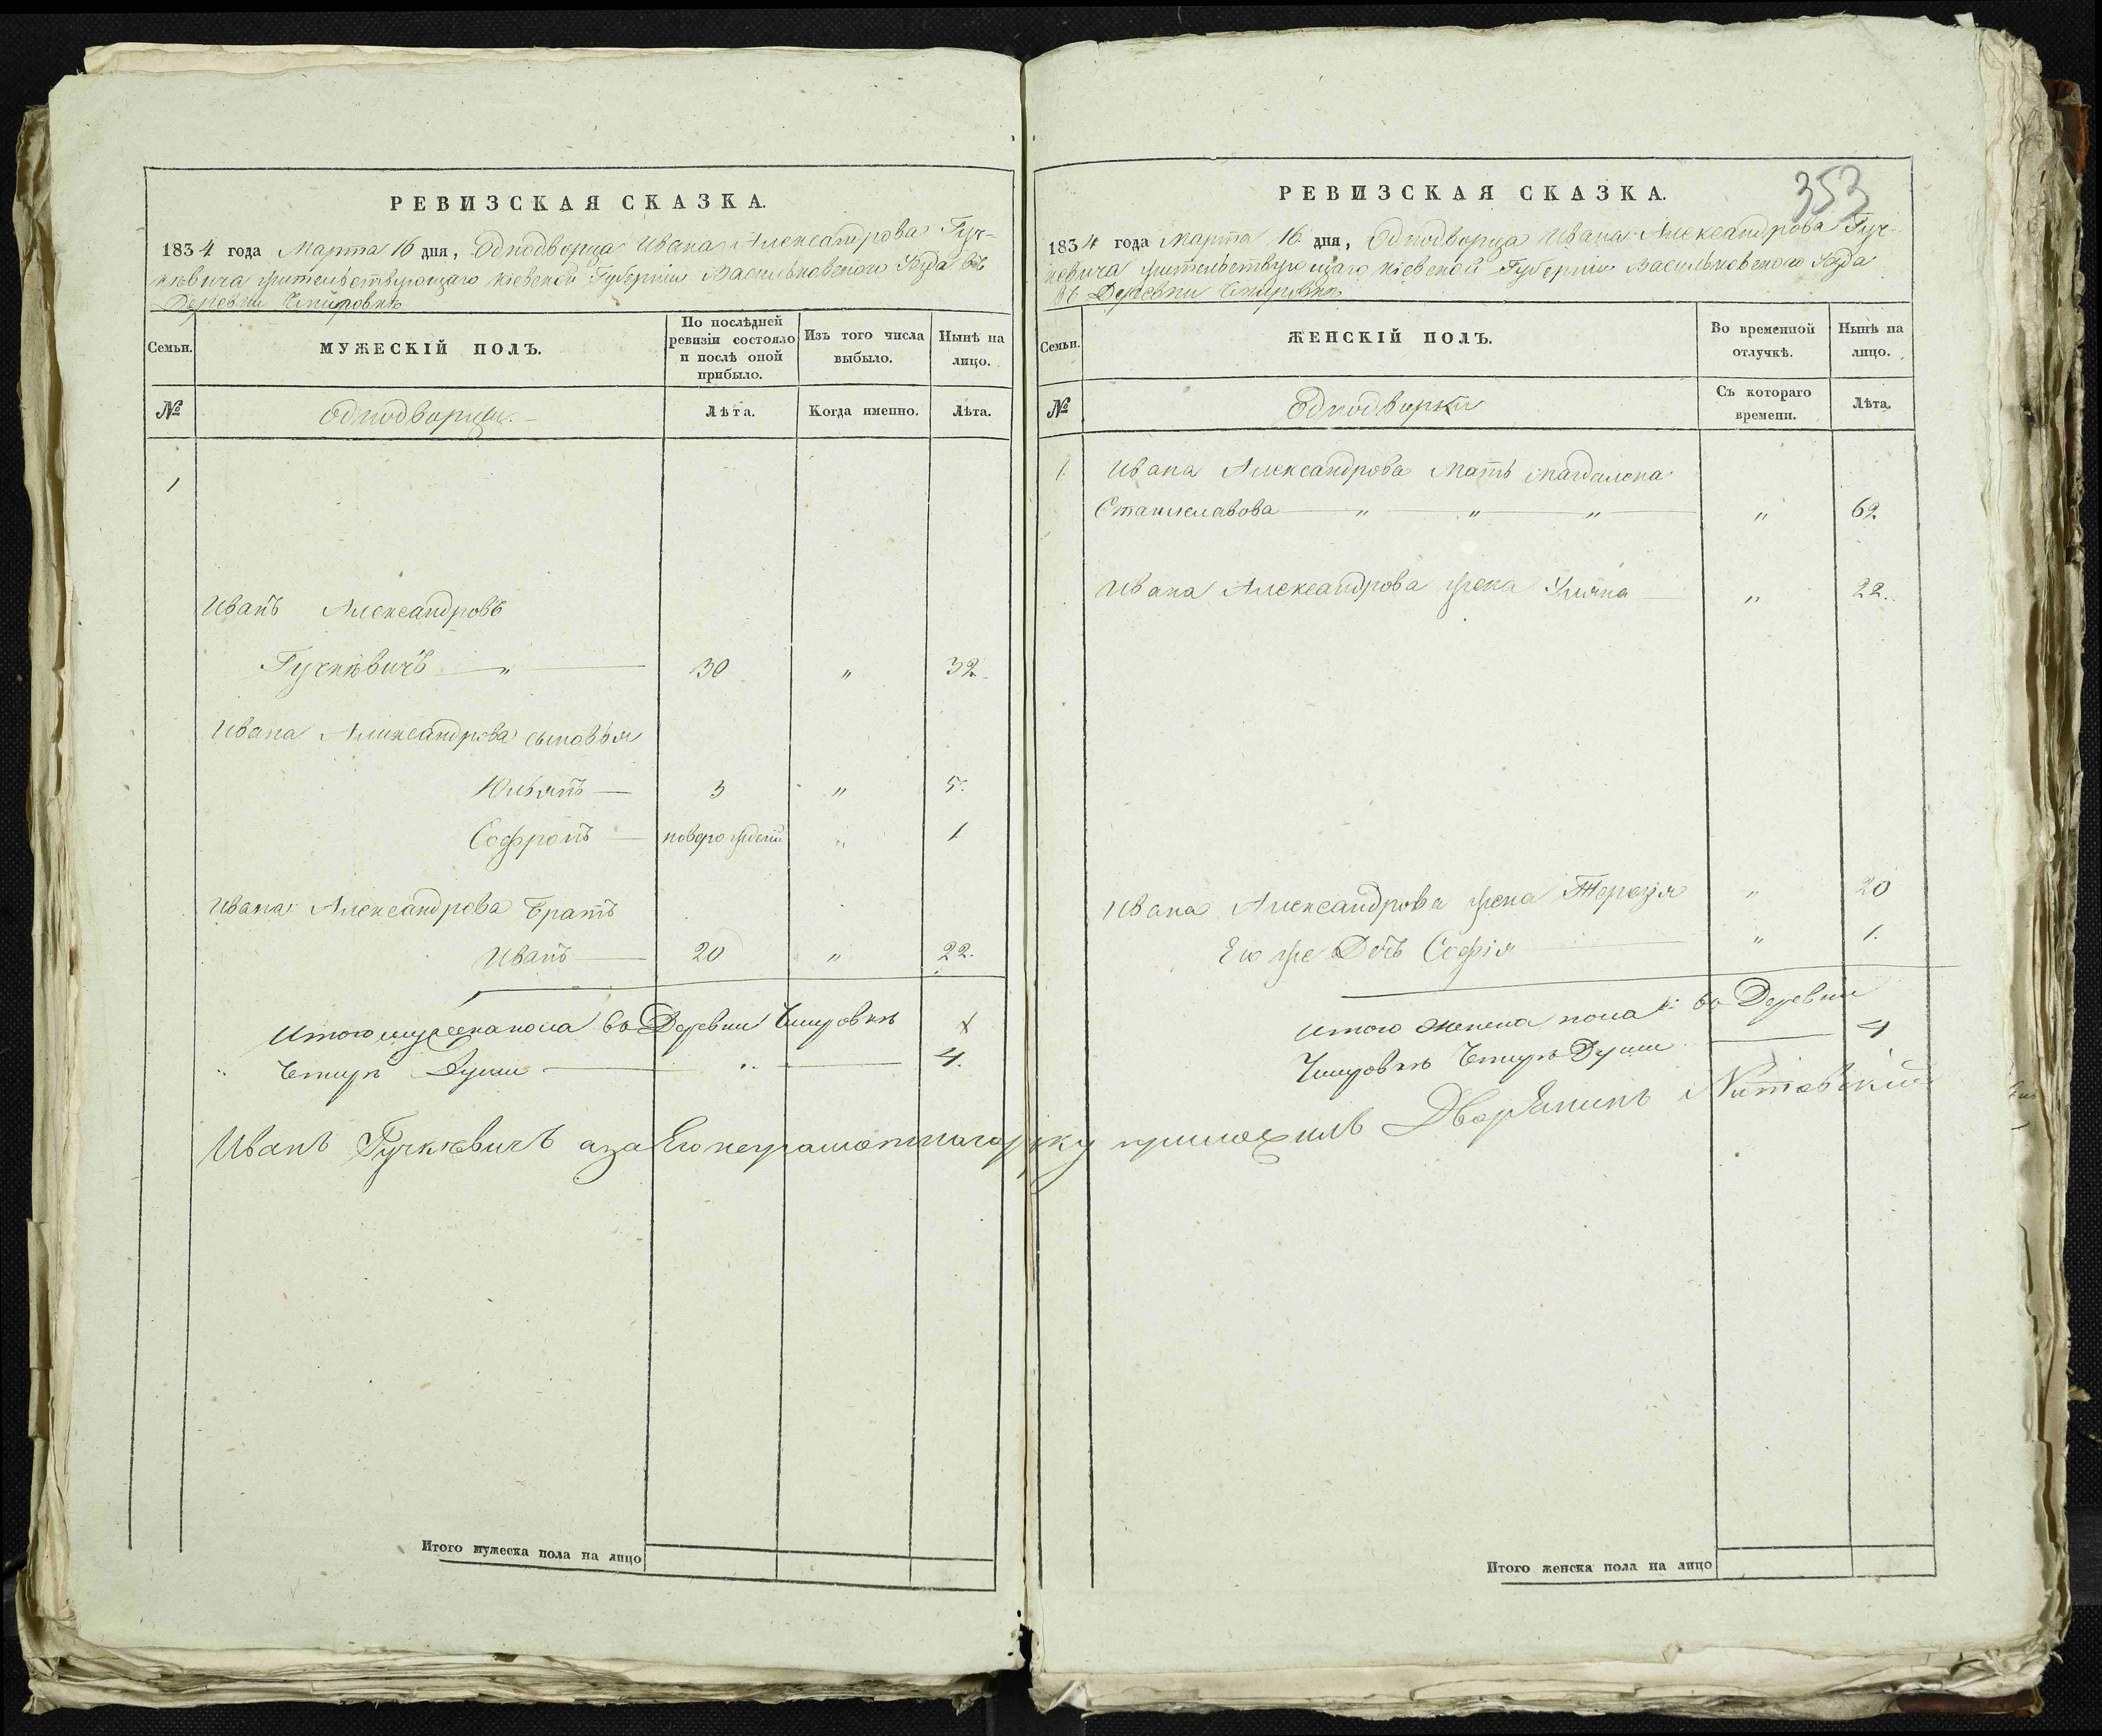 РЕВИЗСКАЯ СКАЗКА.
1834 года Марта 16 дня, Однодворца Ивана Александрова Гуч-
кѣвича жительствующаго Кіевской Губерніи Васильковскаго уѣзда въ
Деревни
Семьи.
МУЖЕСКІЙ ПОЛЪ.
По послѣдней ревизіи состояло и послѣ оной прибыло.
Изъ того числа выбыло.
Нынѣ на лицо.
№
Однодворцы.
Лѣта.
Когда именно.
Лѣта.
1
Иванъ Александровъ
Гучкѣвичъ — „ — 30 „ 32.
Ивана Александрова сыновья
Юльянъ — 3 „ 5.
Софронъ — новорожденъ „ 1
Ивана Александрова Братъ
Иванъ — 20 „ 22.
Итого мужеска пола во Деревни
Четыре Души — „ — 4.
Иванъ Гучкѣвичъ а за Его неграмотнаго руку приложилъ Дворянинъ
Итого мужеска пола на лицо
353
РЕВИЗСКАЯ СКАЗКА.
1834 года Марта 16 дня, Однодворца Ивана Александрова Гуч-
кѣвича жительствующаго Кіевской Губерніи Васильковскаго уѣзда
въ Деревни
Семьи.
ЖЕНСКІЙ ПОЛЪ.
Во временной отлучкѣ.
Нынѣ на лицо.
№
Однодворки
Съ котораго времени.
Лѣта.
1. Ивана Александрова Мать Магдалена
Станиславова — „ — „ — „ — „ 62
Ивана Александрова жена Ульяна — „ 22.
Ивана Александрова жена Терезія „ 20
Его же Дочь Софія — „ 1.
Итого женска пола во Деревни
Четыре Души — 4
Итого женска пола на лицо